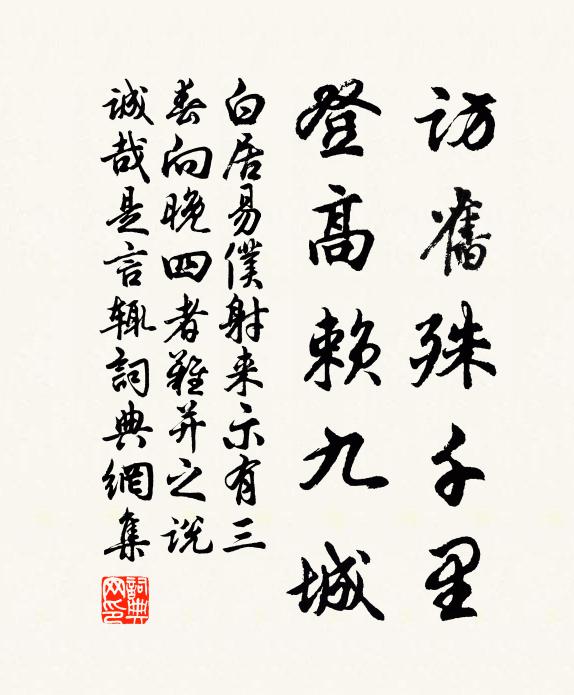 访舊殊千里
登高賴九城
白居易僕射来示有三
春向晚四者難并之说
诚哉是言辄詞典網集
詞典網印